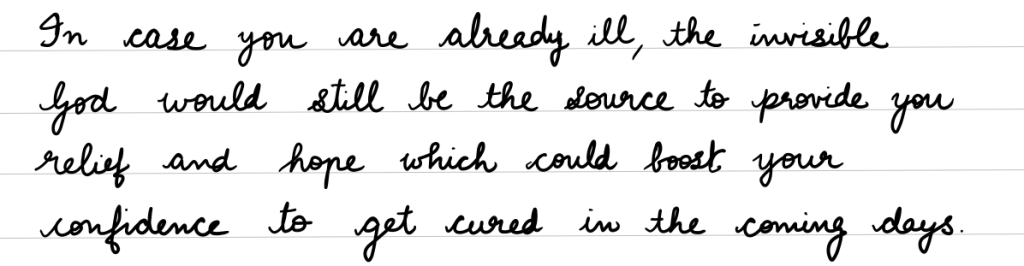 In case you are already ill, the invisible
God would still be the source to provide you
relief and hope which could boost your
confidence to get cured in the coming days.